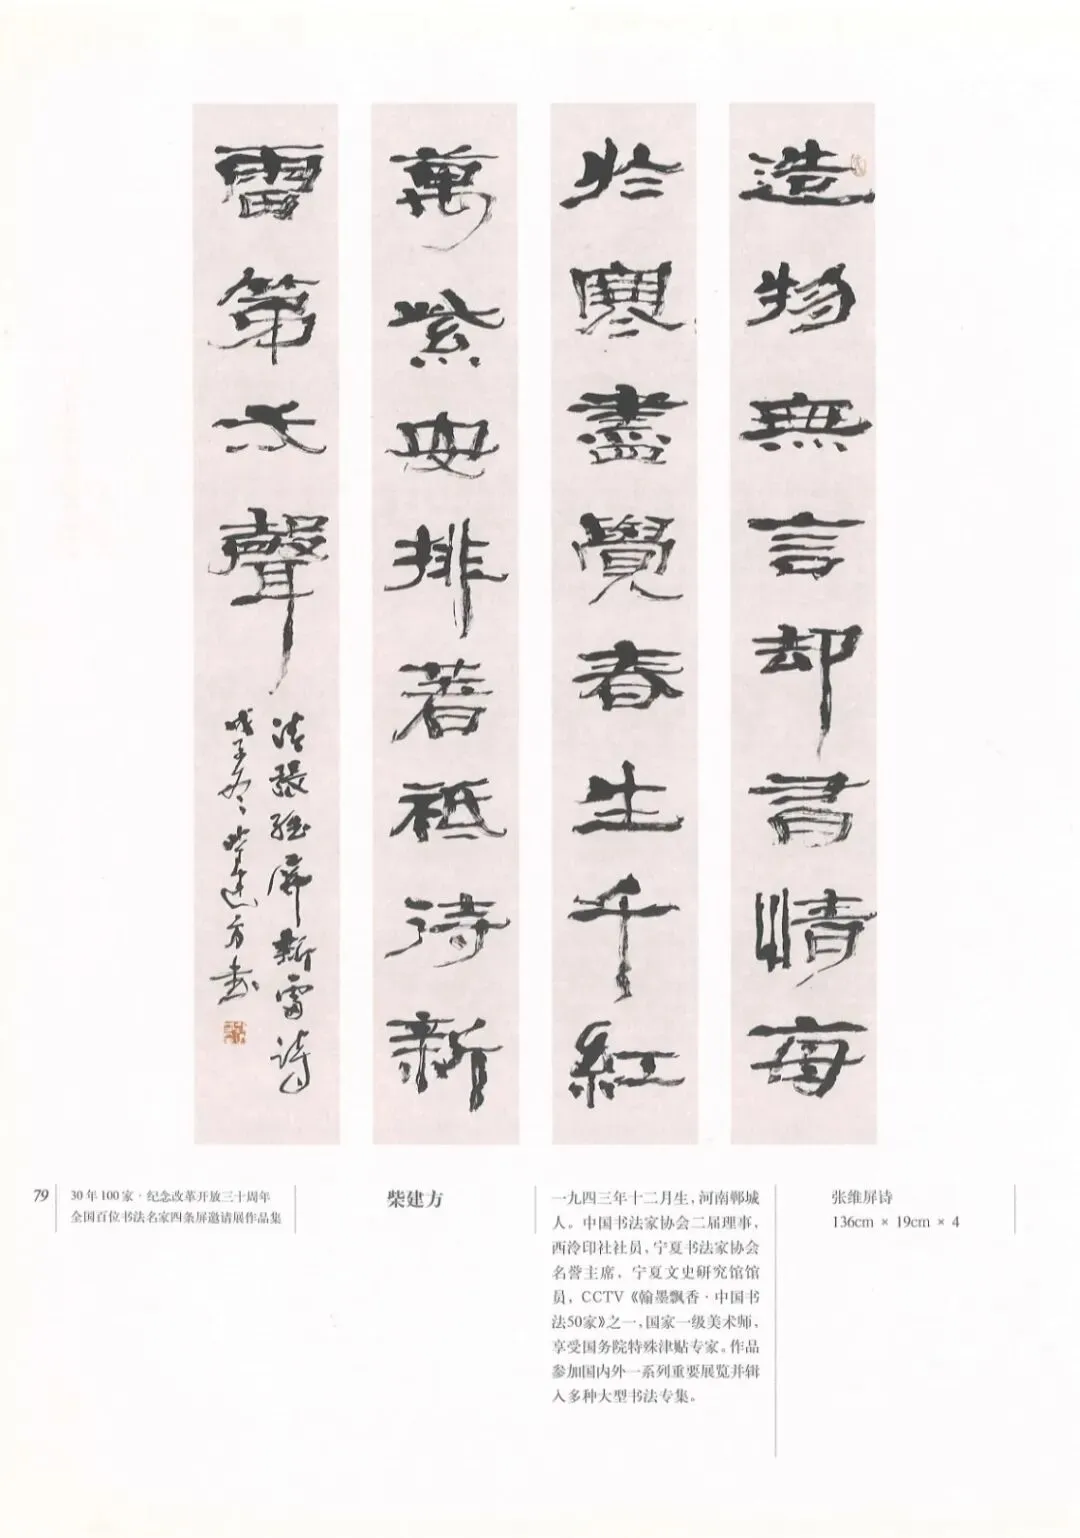 造物無言却有情每
於寒盡覺春生千紅
萬紫安排著祗待新
雷第一聲
清張維屏新雷詩
戊子冬柴建方書
79
30年100家·纪念改革开放三十周年
全国百位书法名家四条屏邀请展作品集
柴建方
一九四三年十二月生,河南郸城
人。中国书法家协会二届理事,
西泠印社社员,宁夏书法家协会
名誉主席,宁夏文史研究馆馆
员,CCTV《翰墨飘香·中国书
法50家》之一,国家一级美术师,
享受国务院特殊津贴专家。作品
参加国内外一系列重要展览并辑
入多种大型书法专集。
张维屏诗
136cm × 19cm × 4